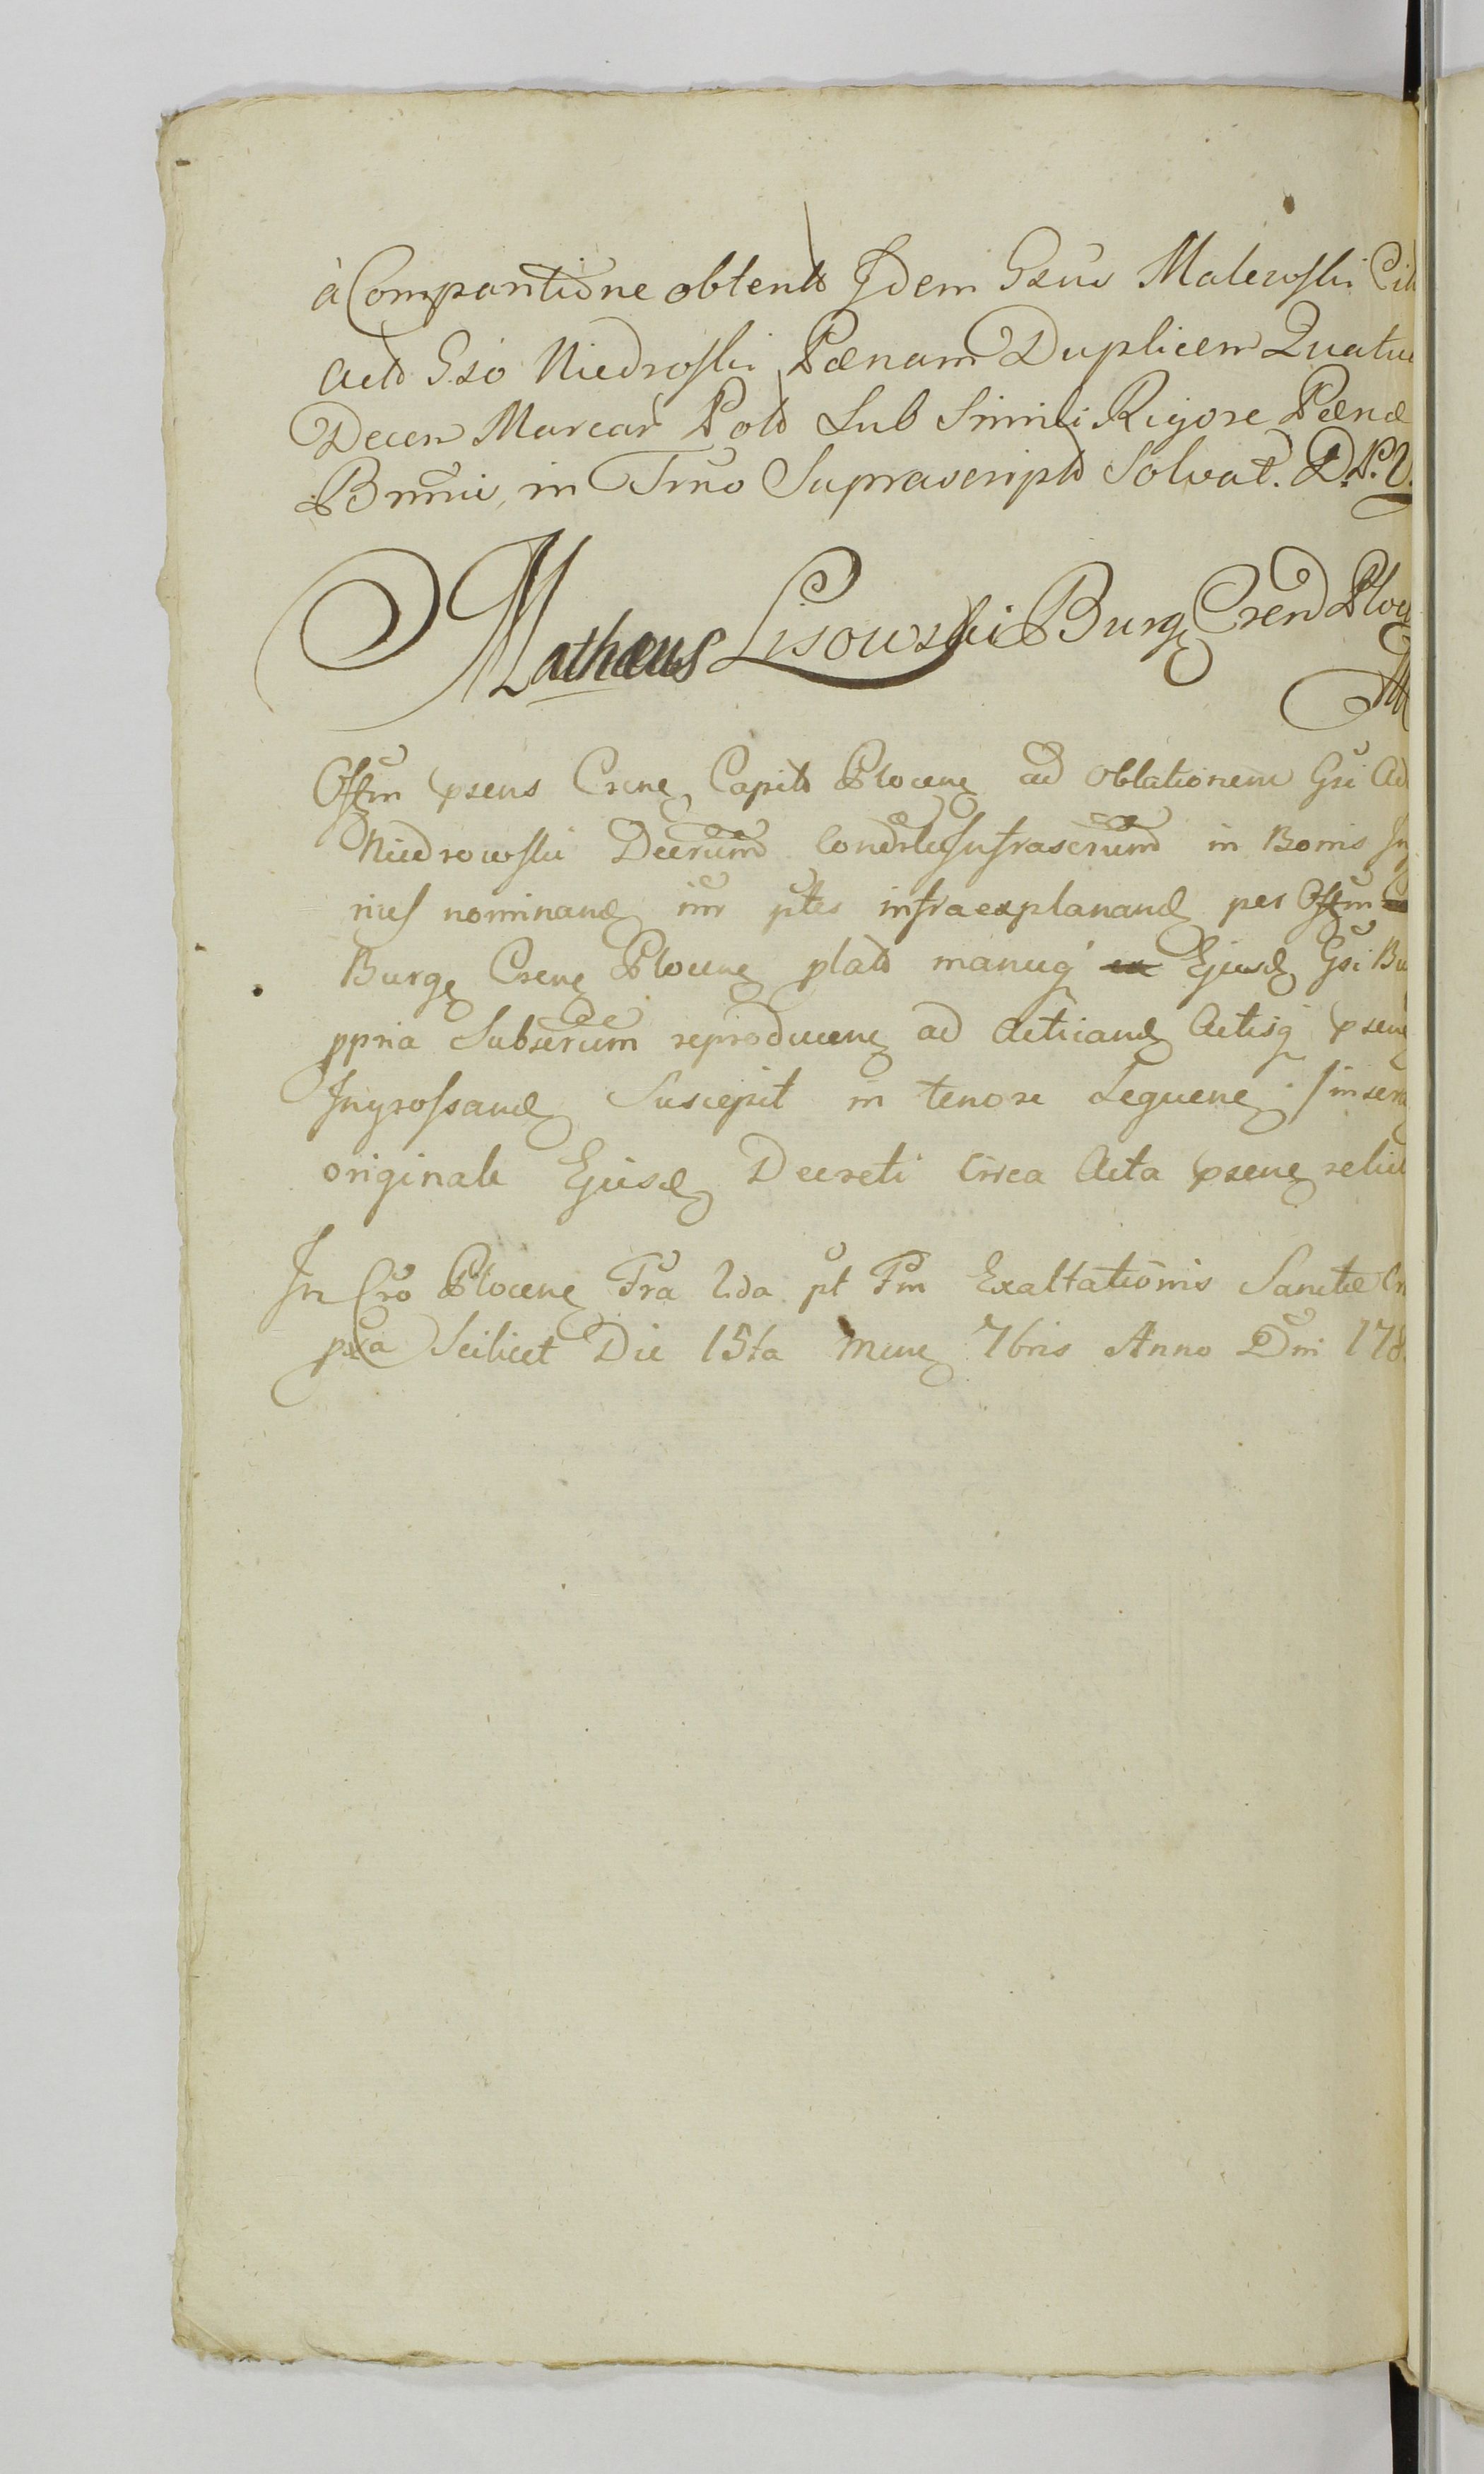 à Compantione obtent Idem Gsus Malewski Cit
Acto Gso Niedroski Pænam Duplicem Quatu
Decem Marcar Pol Sub Simili Rigore Pænæ
Bnnii, in Trno Suprascript Solvat. D. P. V.
Mathæus Lisowski Burg Cren Ploc
Offm psens Crene Capit Plocene ad oblationem Gsi Ad
Niedrowski Decrum Condle Infrascrum in Bonis In
rius nominand inr ptes infraexplanand per Offm
Burg Crene Plocene plat manuq Ejusd Gsi Bu
ppria Subscrum reproducene ad acticand Actisq psene
Ingrossand Suscepit in tenore Sequene
originale Ejusd Decreti Circa Acta psene relict
In Cro Plocene Fra 2da pt Fm Exaltationis Sanctæ Cr
pxa Scilicet Die 15ta Mene 7bris Anno Dni 178